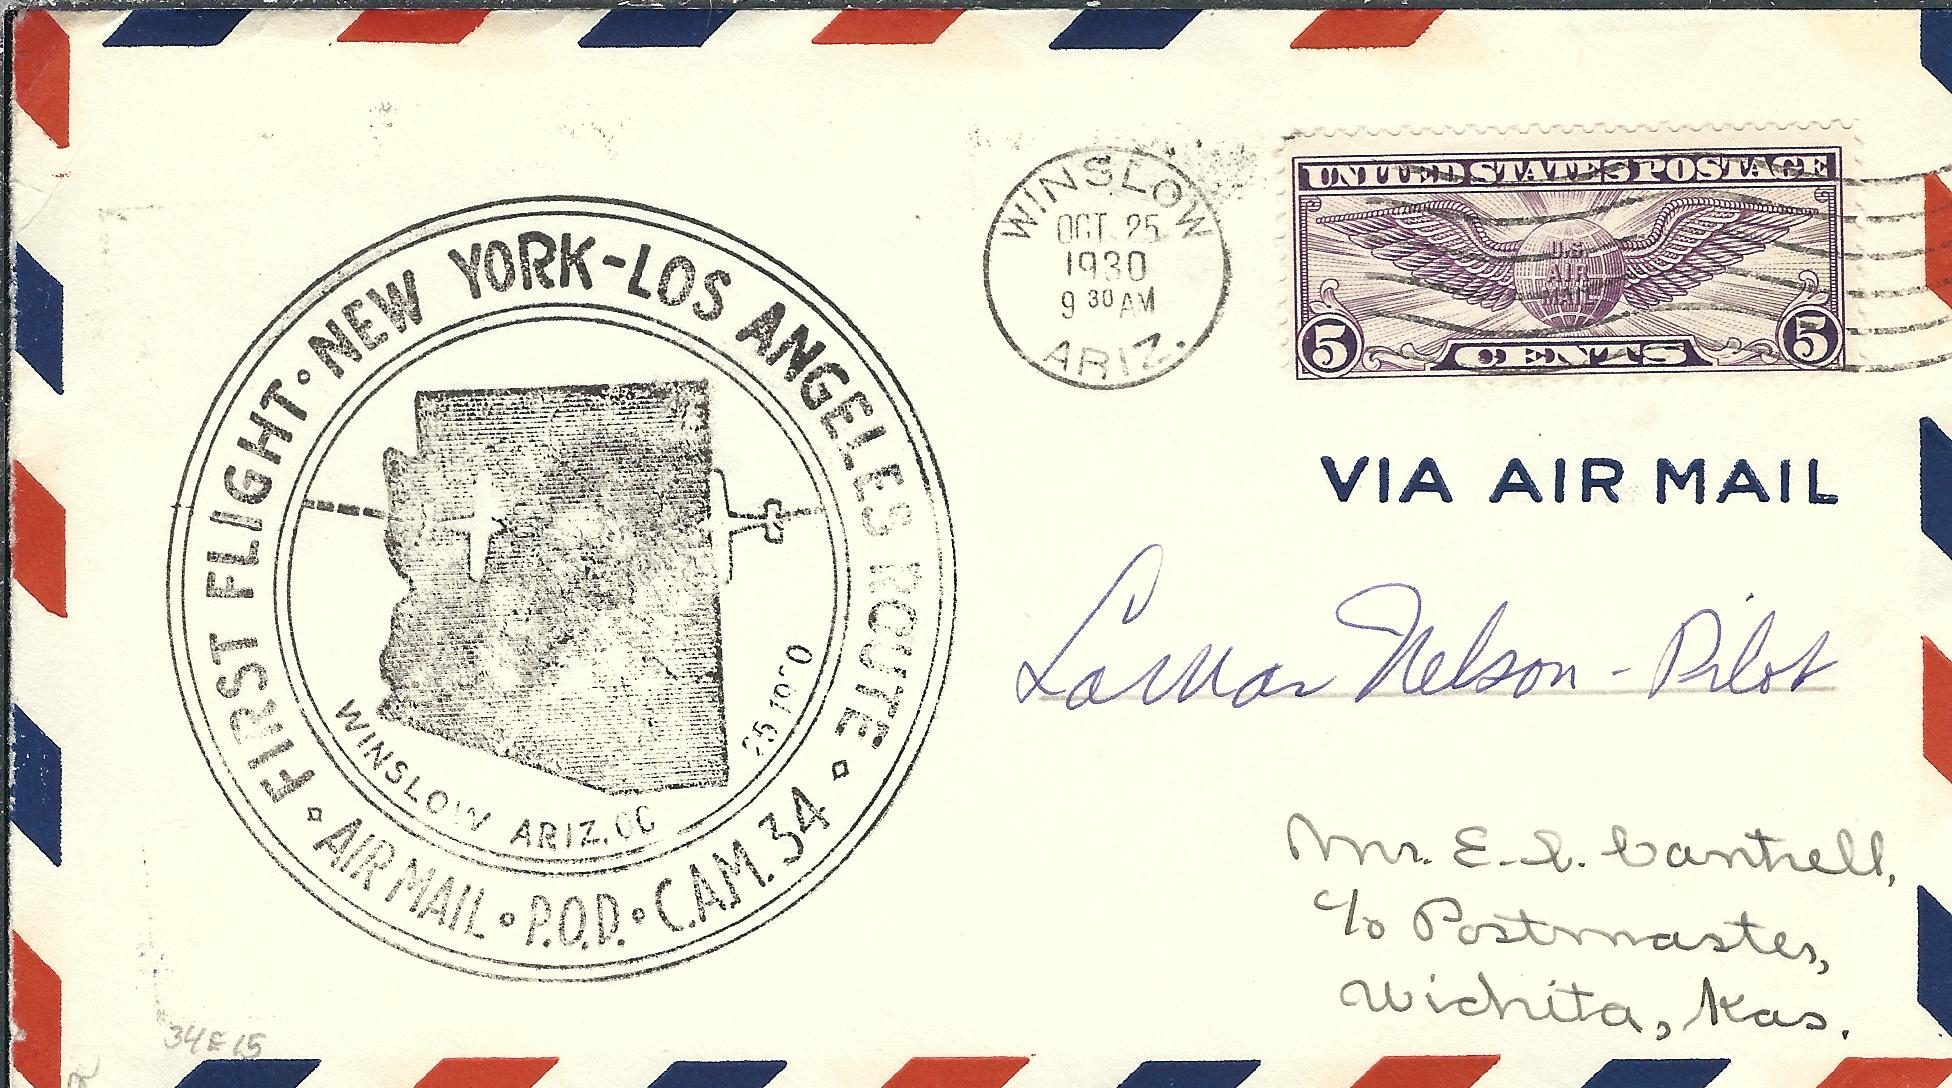 UNITED STATES POSTAGE
U.S.
AIR
MAIL
5 CENTS 5
WINSLOW
OCT. 25
1930
9 30 AM
ARIZ.
FIRST FLIGHT • NEW YORK-LOS ANGELES ROUTE
WINSLOW ARIZ. OC 25 19 0
AIR MAIL • P.O.D. • C.A.M. 34
VIA AIR MAIL
LaMar Nelson - Pilot
Mr. E. L. Cantrell,
c/o Postmaster,
Wichita, Kas.
34E15